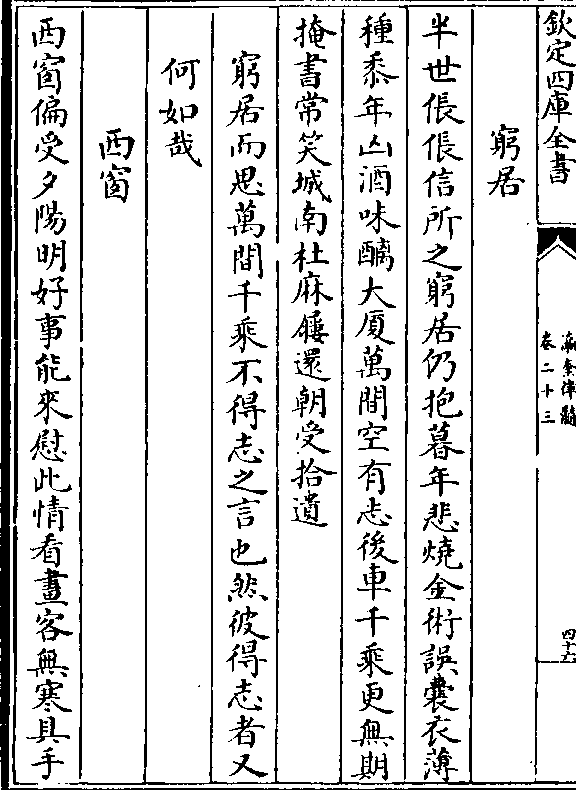 欽定四庫全書
瀛奎律髓
卷二十三
四十六
窮居
半世倀倀信所之窮居仍抱暮年悲燒金術誤囊衣薄
種黍年凶酒味醨大厦萬間空有志後車千乘更無期
掩書常笑城南杜麻屨還朝受拾遺
窮居而思萬間千乘不得志之言也然彼得志者又
何如哉
西窗
西窗偏受夕陽明好事能來慰此情看畫客無寒具手